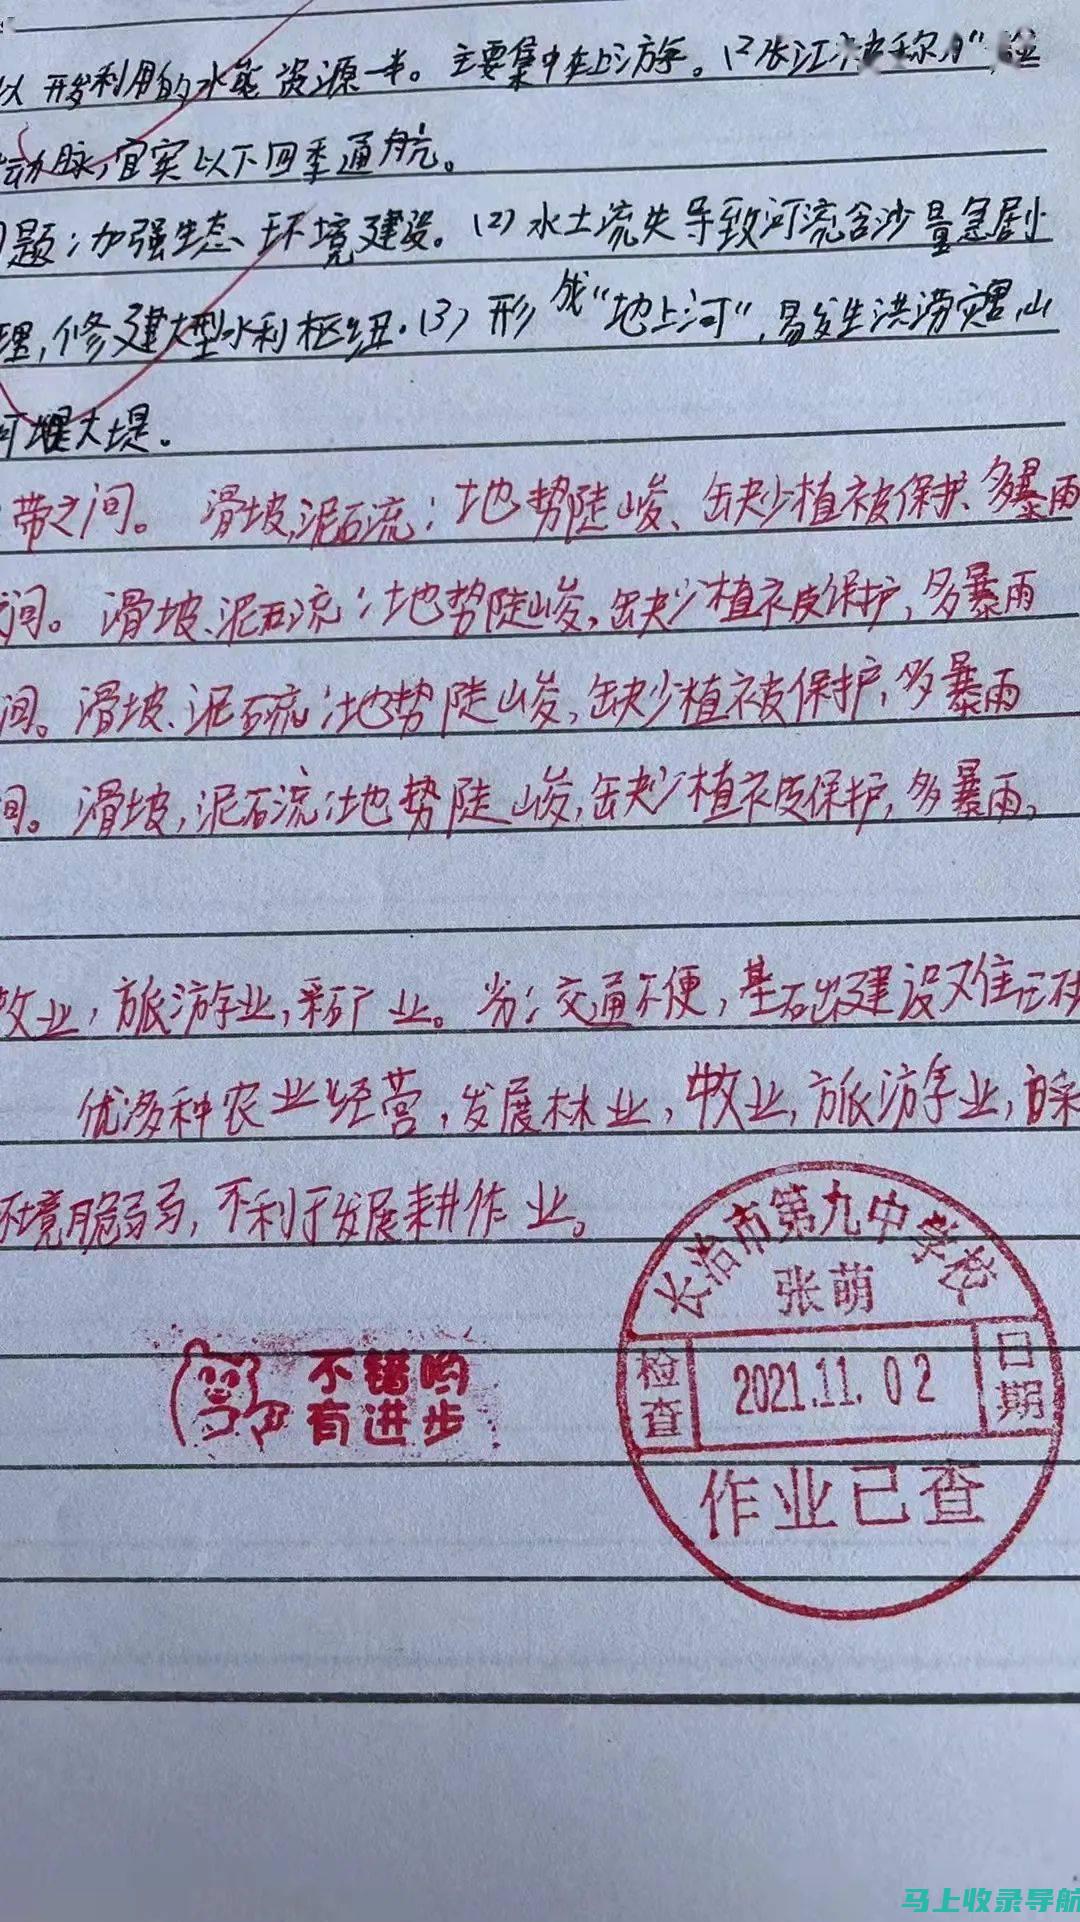 以开发利用的水能资源一半。主要集中在上游。(2)长江被称为"
动脉,宜宾以下四季通航。
题:加强生态环境建设。(2)水土流失导致河流含沙量急剧
理,修建大型水利枢纽.(3)形成"地上河",易发生洪涝灾害,
大堤。
带之间。滑坡,泥石流:地势陡峻、缺少植被保护、多暴雨
间。滑坡、泥石流:地势陡峻,缺少植被保护,多暴雨
间。滑坡、泥石流:地势陡峻,缺少植被保护,多暴雨
间。滑坡,泥石流:地势陡峻,缺少植被保护,多暴雨,
牧业,旅游业,采矿业。劣:交通不便,基础建设难
优:多种农业经营,发展林业,牧业,旅游业,采
环境脆弱,不利于发展耕作业。
长治市第九中学校
张萌
检查 2021.11.02 日期
作业已查
不错哟
有进步
马上收录导航